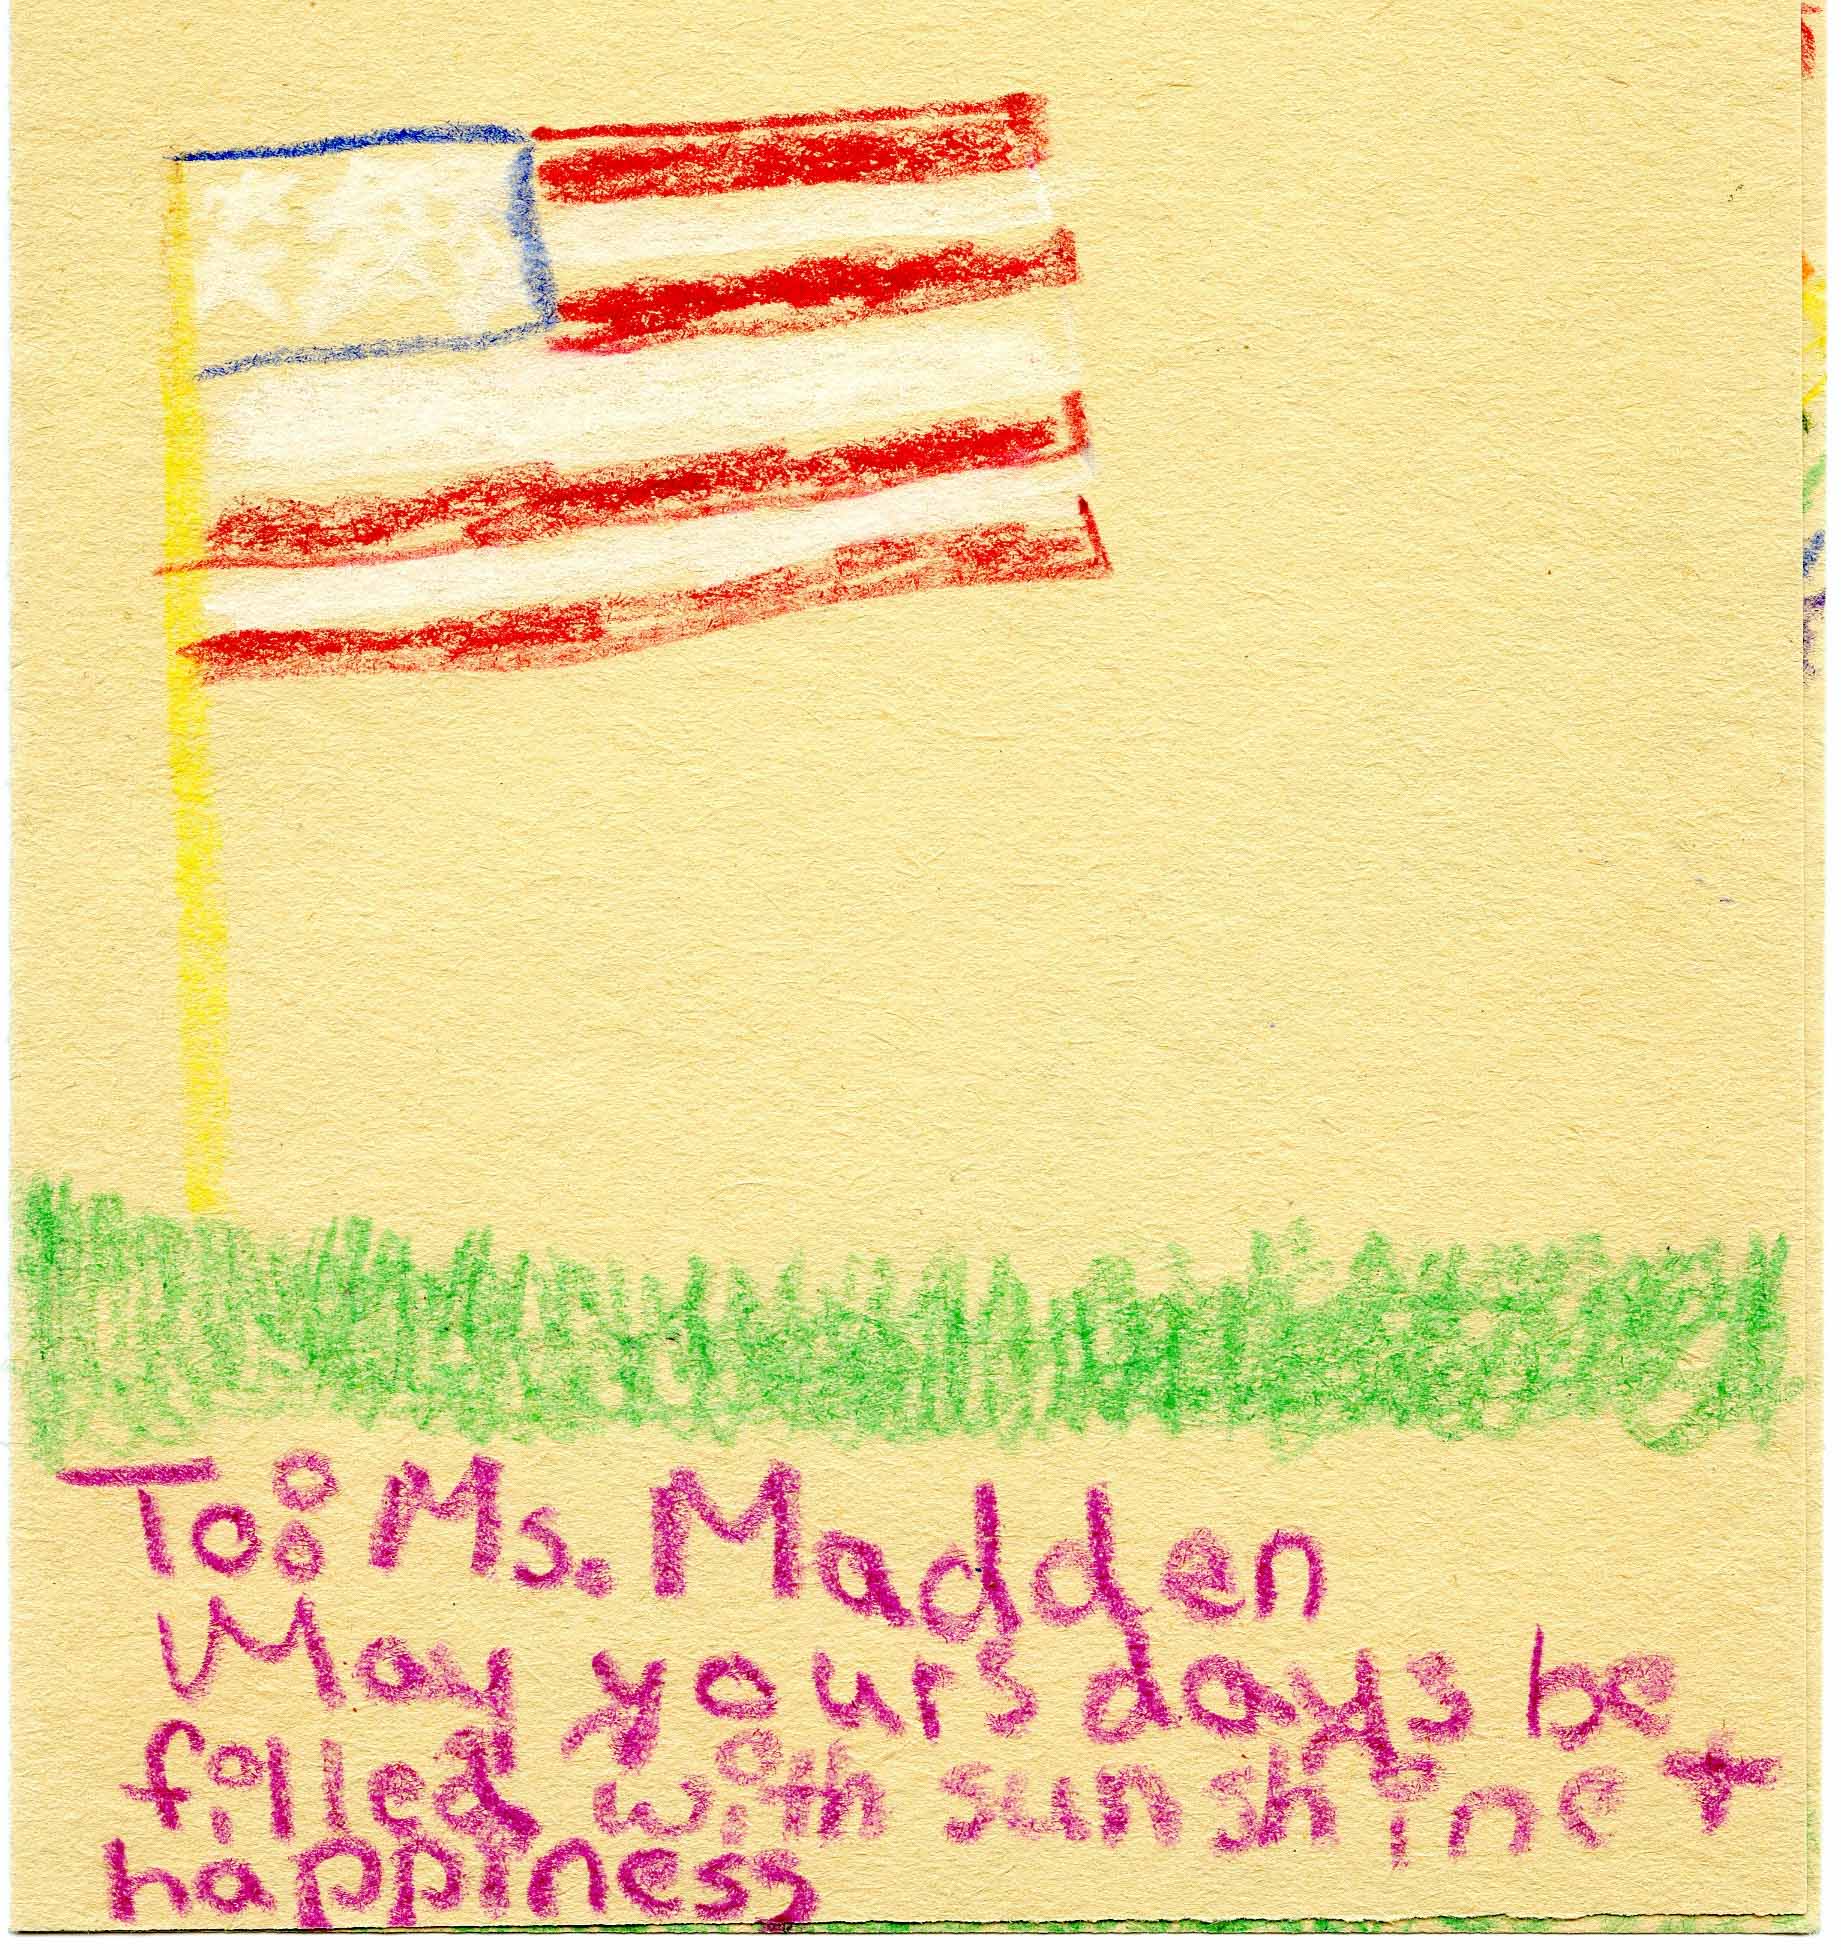 To: Ms. Madden
May yours days be
filled with sunshine +
happiness